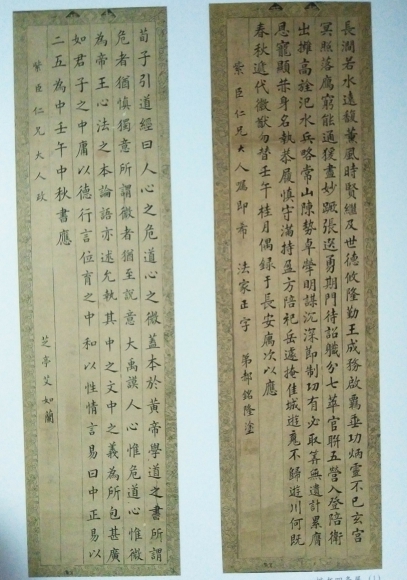 長瀾若水遠馥薰風時賢繼及世德攸隆勤王成務啟霸垂功炳靈不已玄宮
冥照落鷹窮能通猨盡妙蹶張選勇期門待詔職分七萃官聯五營入登陪衛
出摧高詮汜水兵略常山陳勢卓犖明謀沉深節制功有必取筭無遺計累膺
恩寵顯茲身名執恭履慎守滿持盈方陪祀岳遽掩佳城遊鳧不歸逝川何既
春秋遞代徽猷勿替壬午桂月偶錄于長安寓次以應
紫臣仁兄大人屬即希 法家正字 弟 銘隆塗
荀子引道經曰人心之危道心之微蓋本於黃帝學道之書所謂
危者猶慎獨意所謂微者猶至誠意大禹謨人心惟危道心惟微
為帝王心法之本論語亦述允執其中之文中之義為所包甚廣
如君子之中庸以德行言位育之中和以性情言易曰中正易以
二五為中壬午中秋書應
紫臣仁兄大人政
芝亭艾如蘭